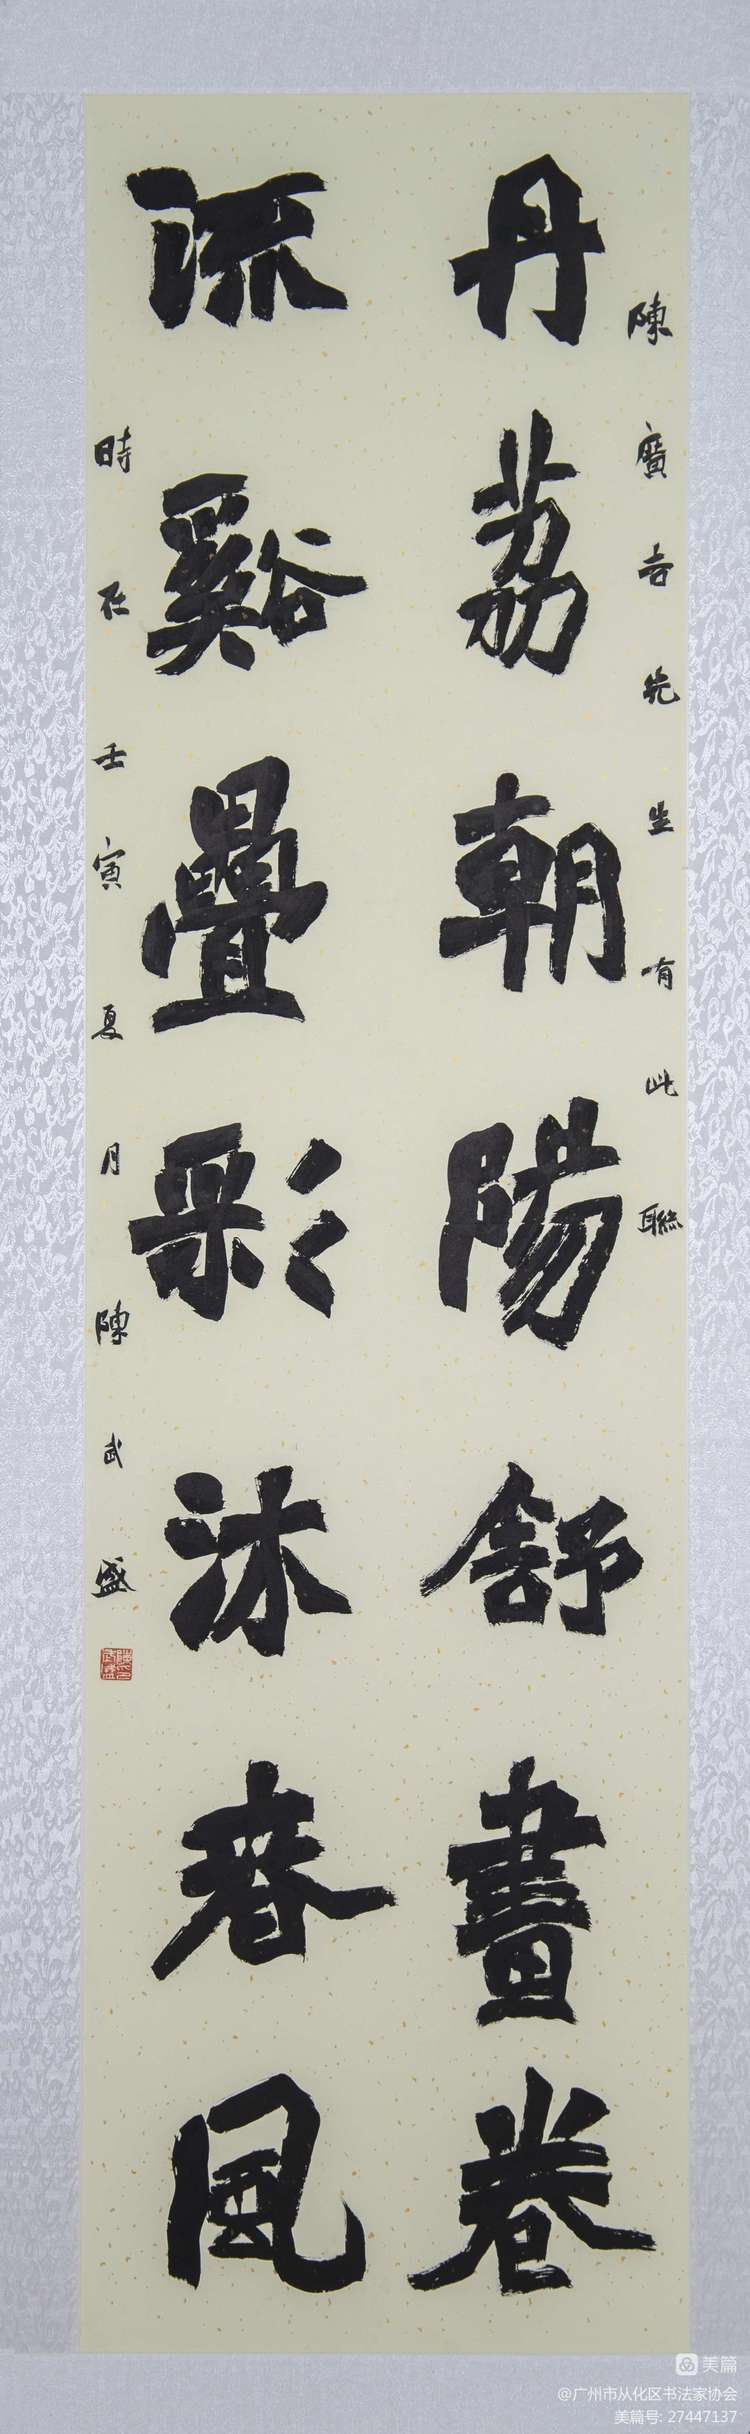 陳廣吉先生有此聯
丹荔朝陽舒畫卷
流谿疊彩沐春風
時在壬寅夏月陳武盛
美篇
@广州市从化区书法家协会
美篇号: 27447137